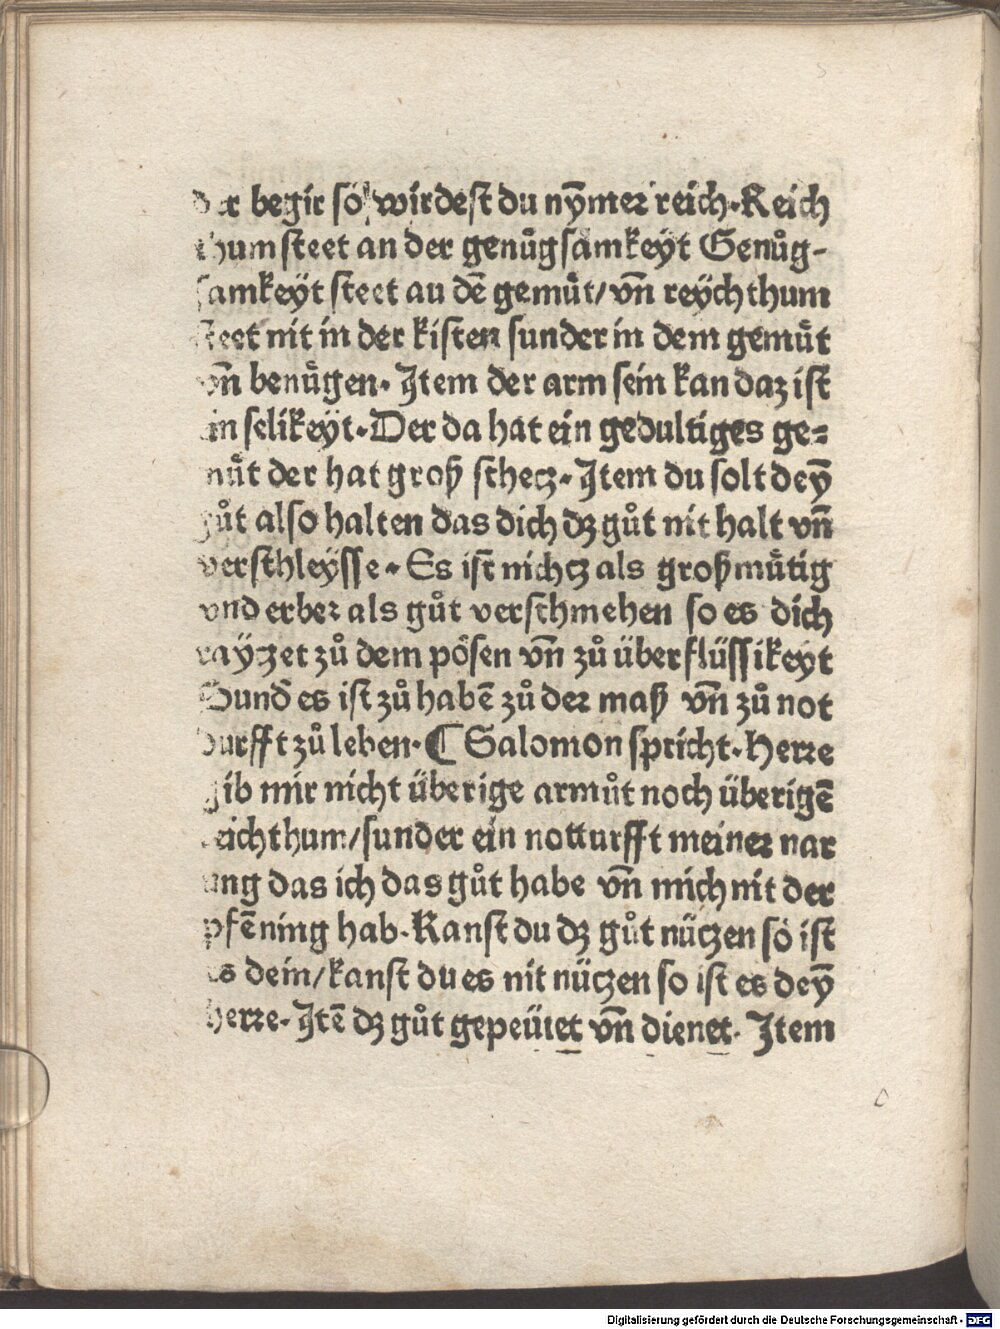 der begir so wirdest du nÿmer reich. Reich
thum steet an der genůgsamkeyt Genůg-
samkeÿt steet an dē gemuͤt/ vn̄ reÿchthum
steet nit in der kisten sunder in dem gemuͤt
vn̄ benuͤgen. Item der arm sein kan daz ist
ein selikeÿt. Der da hat ein gedultiges ge=
muͤt der hat groß schetz. Item du solt deȳ
gůt also halten das dich dz gůt nit halt vn̄
verschleÿsse. Es ist nichtz als großmuͤtig
vnd erber als gůt verschmehen so es dich
raytzet zů dem poͤsen vn̄ zů überflüssikeyt
Sund̄ es ist zů habē zů der maß vn̄ zů not
durfft zů leben. ¶ Salomon spricht. Herre
gib mir nicht überige armůt noch überigē
reichthum/ sunder ein notturfft meiner nar
ung das ich das gůt habe vn̄ mich nit der
pfēning hab. Kanst du dz gůt nützen so ist
es dein/ kanst du es nit nützen so ist es deȳ
herre. Itē dz gůt gepeütet vn̄ dienet. Item
Digitalisierung gefördert durch die Deutsche Forschungsgemeinschaft - DFG